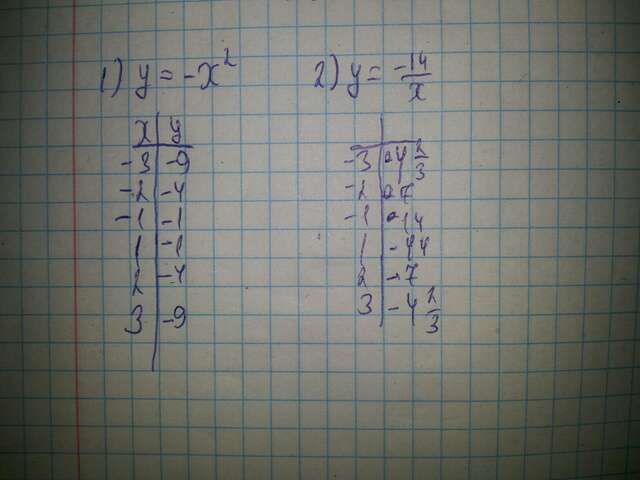 1) y = -x²
x | y
-3 | -9
-2 | -4
-1 | -1
1 | -1
2 | -4
3 | -9
2) y = -14/x
-3 | 4 2/3
-2 | 7
-1 | 14
1 | -14
2 | -7
3 | -4 2/3